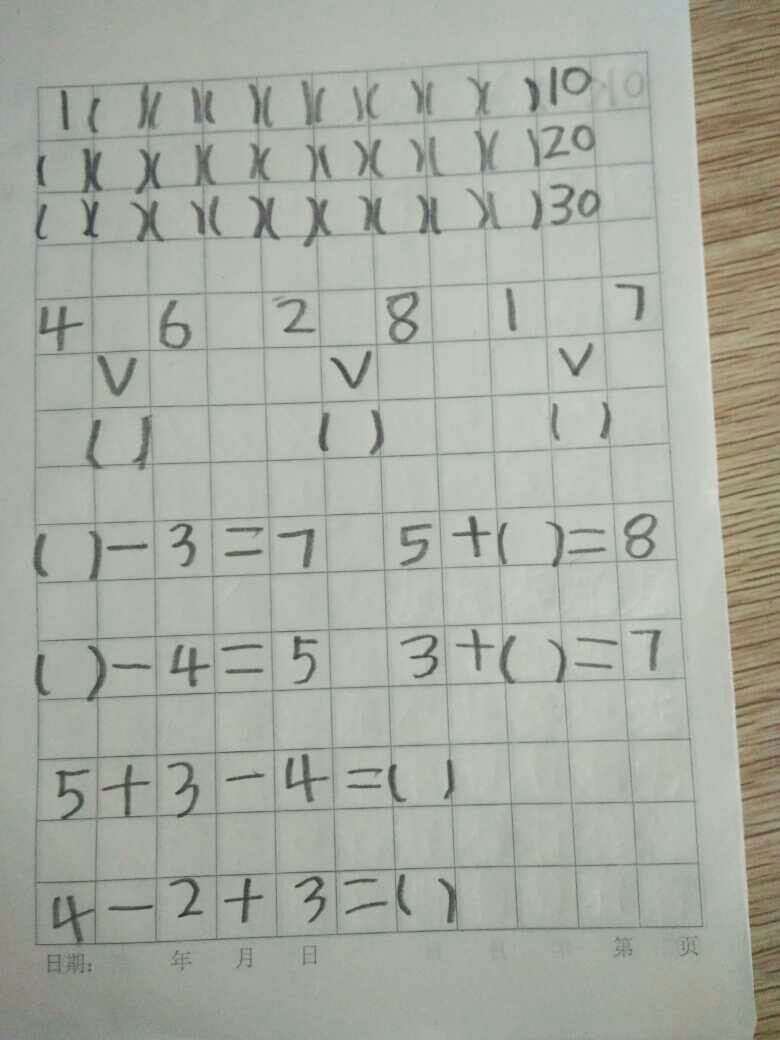 1( )( )( )( )( )( )( )( )10
( )( )( )( )( )( )( )( )( )20
( )( )( )( )( )( )( )( )( )30
4 6 2 8 1 7
V V V
( ) ( ) ( )
( )-3=7 5+( )=8
( )-4=5 3+( )=7
5+3-4=( )
4-2+3=( )
日期: 年 月 日 第 页